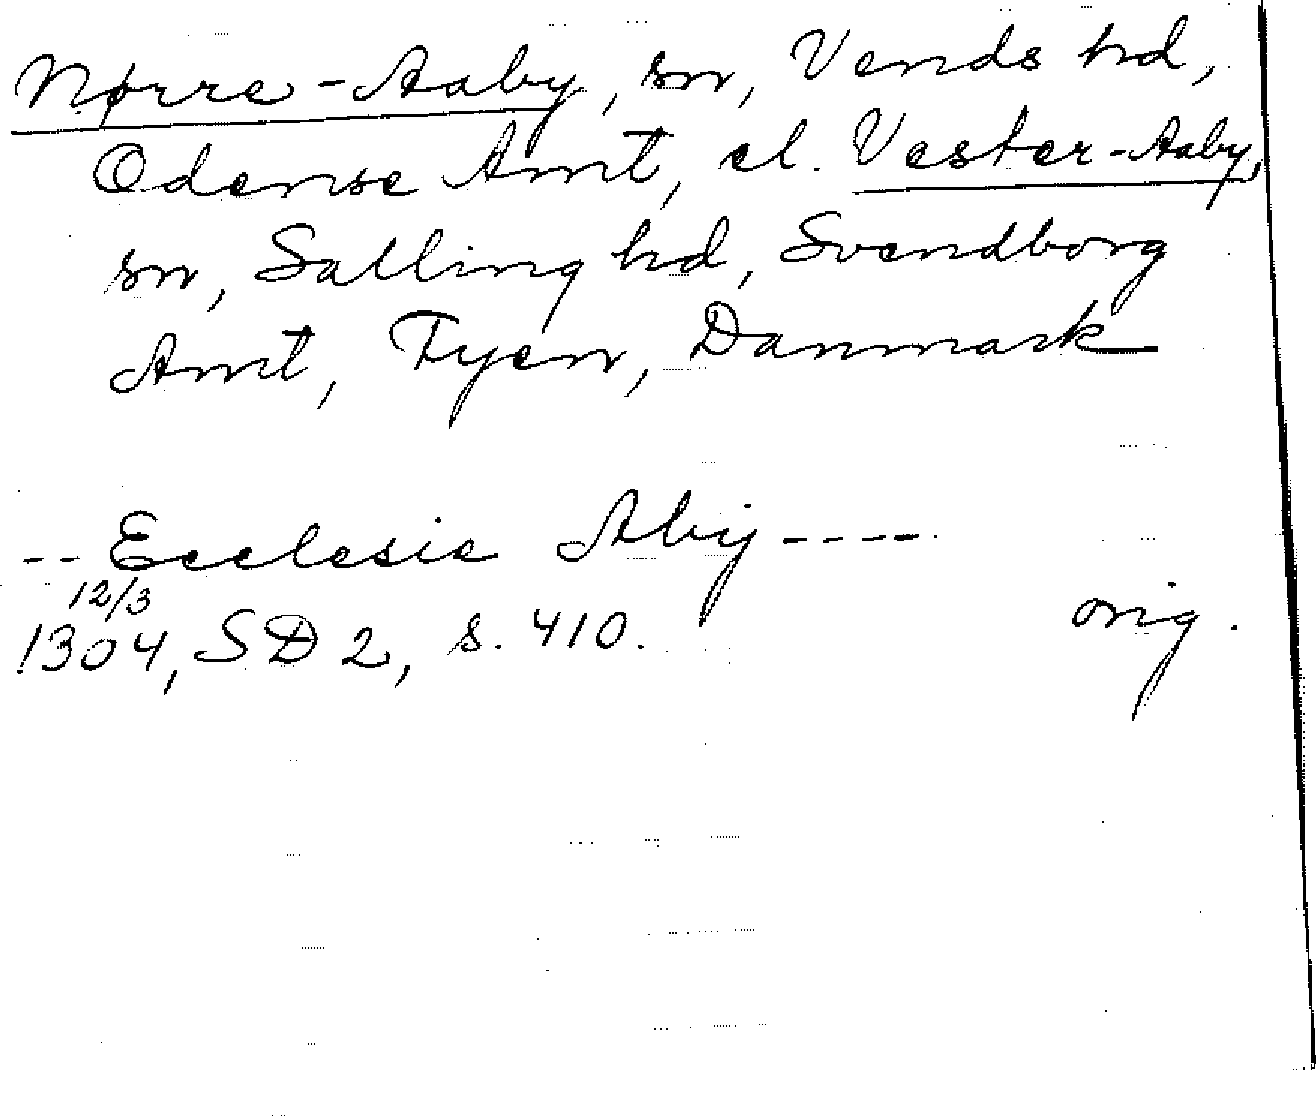 Nørre-Aaby, sn, Vends hd,
Odense Amt, el. Vester-Aaby,
sn, Salling hd, Svendborg
Amt, Fyen, Danmark
--Ecclesie Aby----
12/3
1304, SD 2, s. 410.
orig.